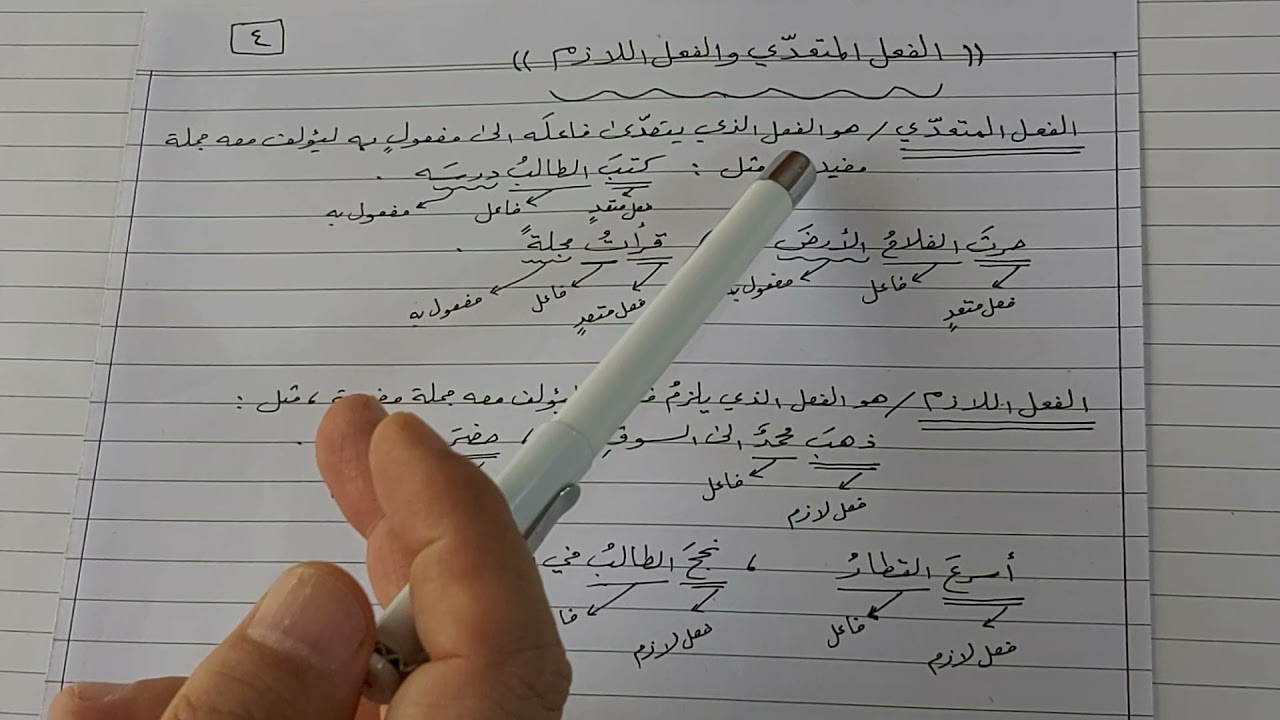 ٤
(( الفعل المتعدّي والفعل اللازم ))
الفعل المتعدّي / هو الفعل الذي يتعدّى فاعلَه الى مفعولٍ به ليؤلف معه جملة
مثل : كتبَ الطالبُ درسَه .
فعل متعدٍ فاعل مفعول به
حرثَ الفلاحُ الأرضَ ، قرأتُ مجلةً .
فعل متعدٍ فاعل مفعول به فعل متعدٍ فاعل مفعول به
الفعل اللازم / هو الفعل الذي يلزمُ ليؤلف معه جملة ، مثل :
ذهبَ محمدٌ الى السوقِ ، .
فعل لازم فاعل
أسرعَ القطارُ ، نجحَ الطالبُ في
فعل لازم فاعل فعل لازم